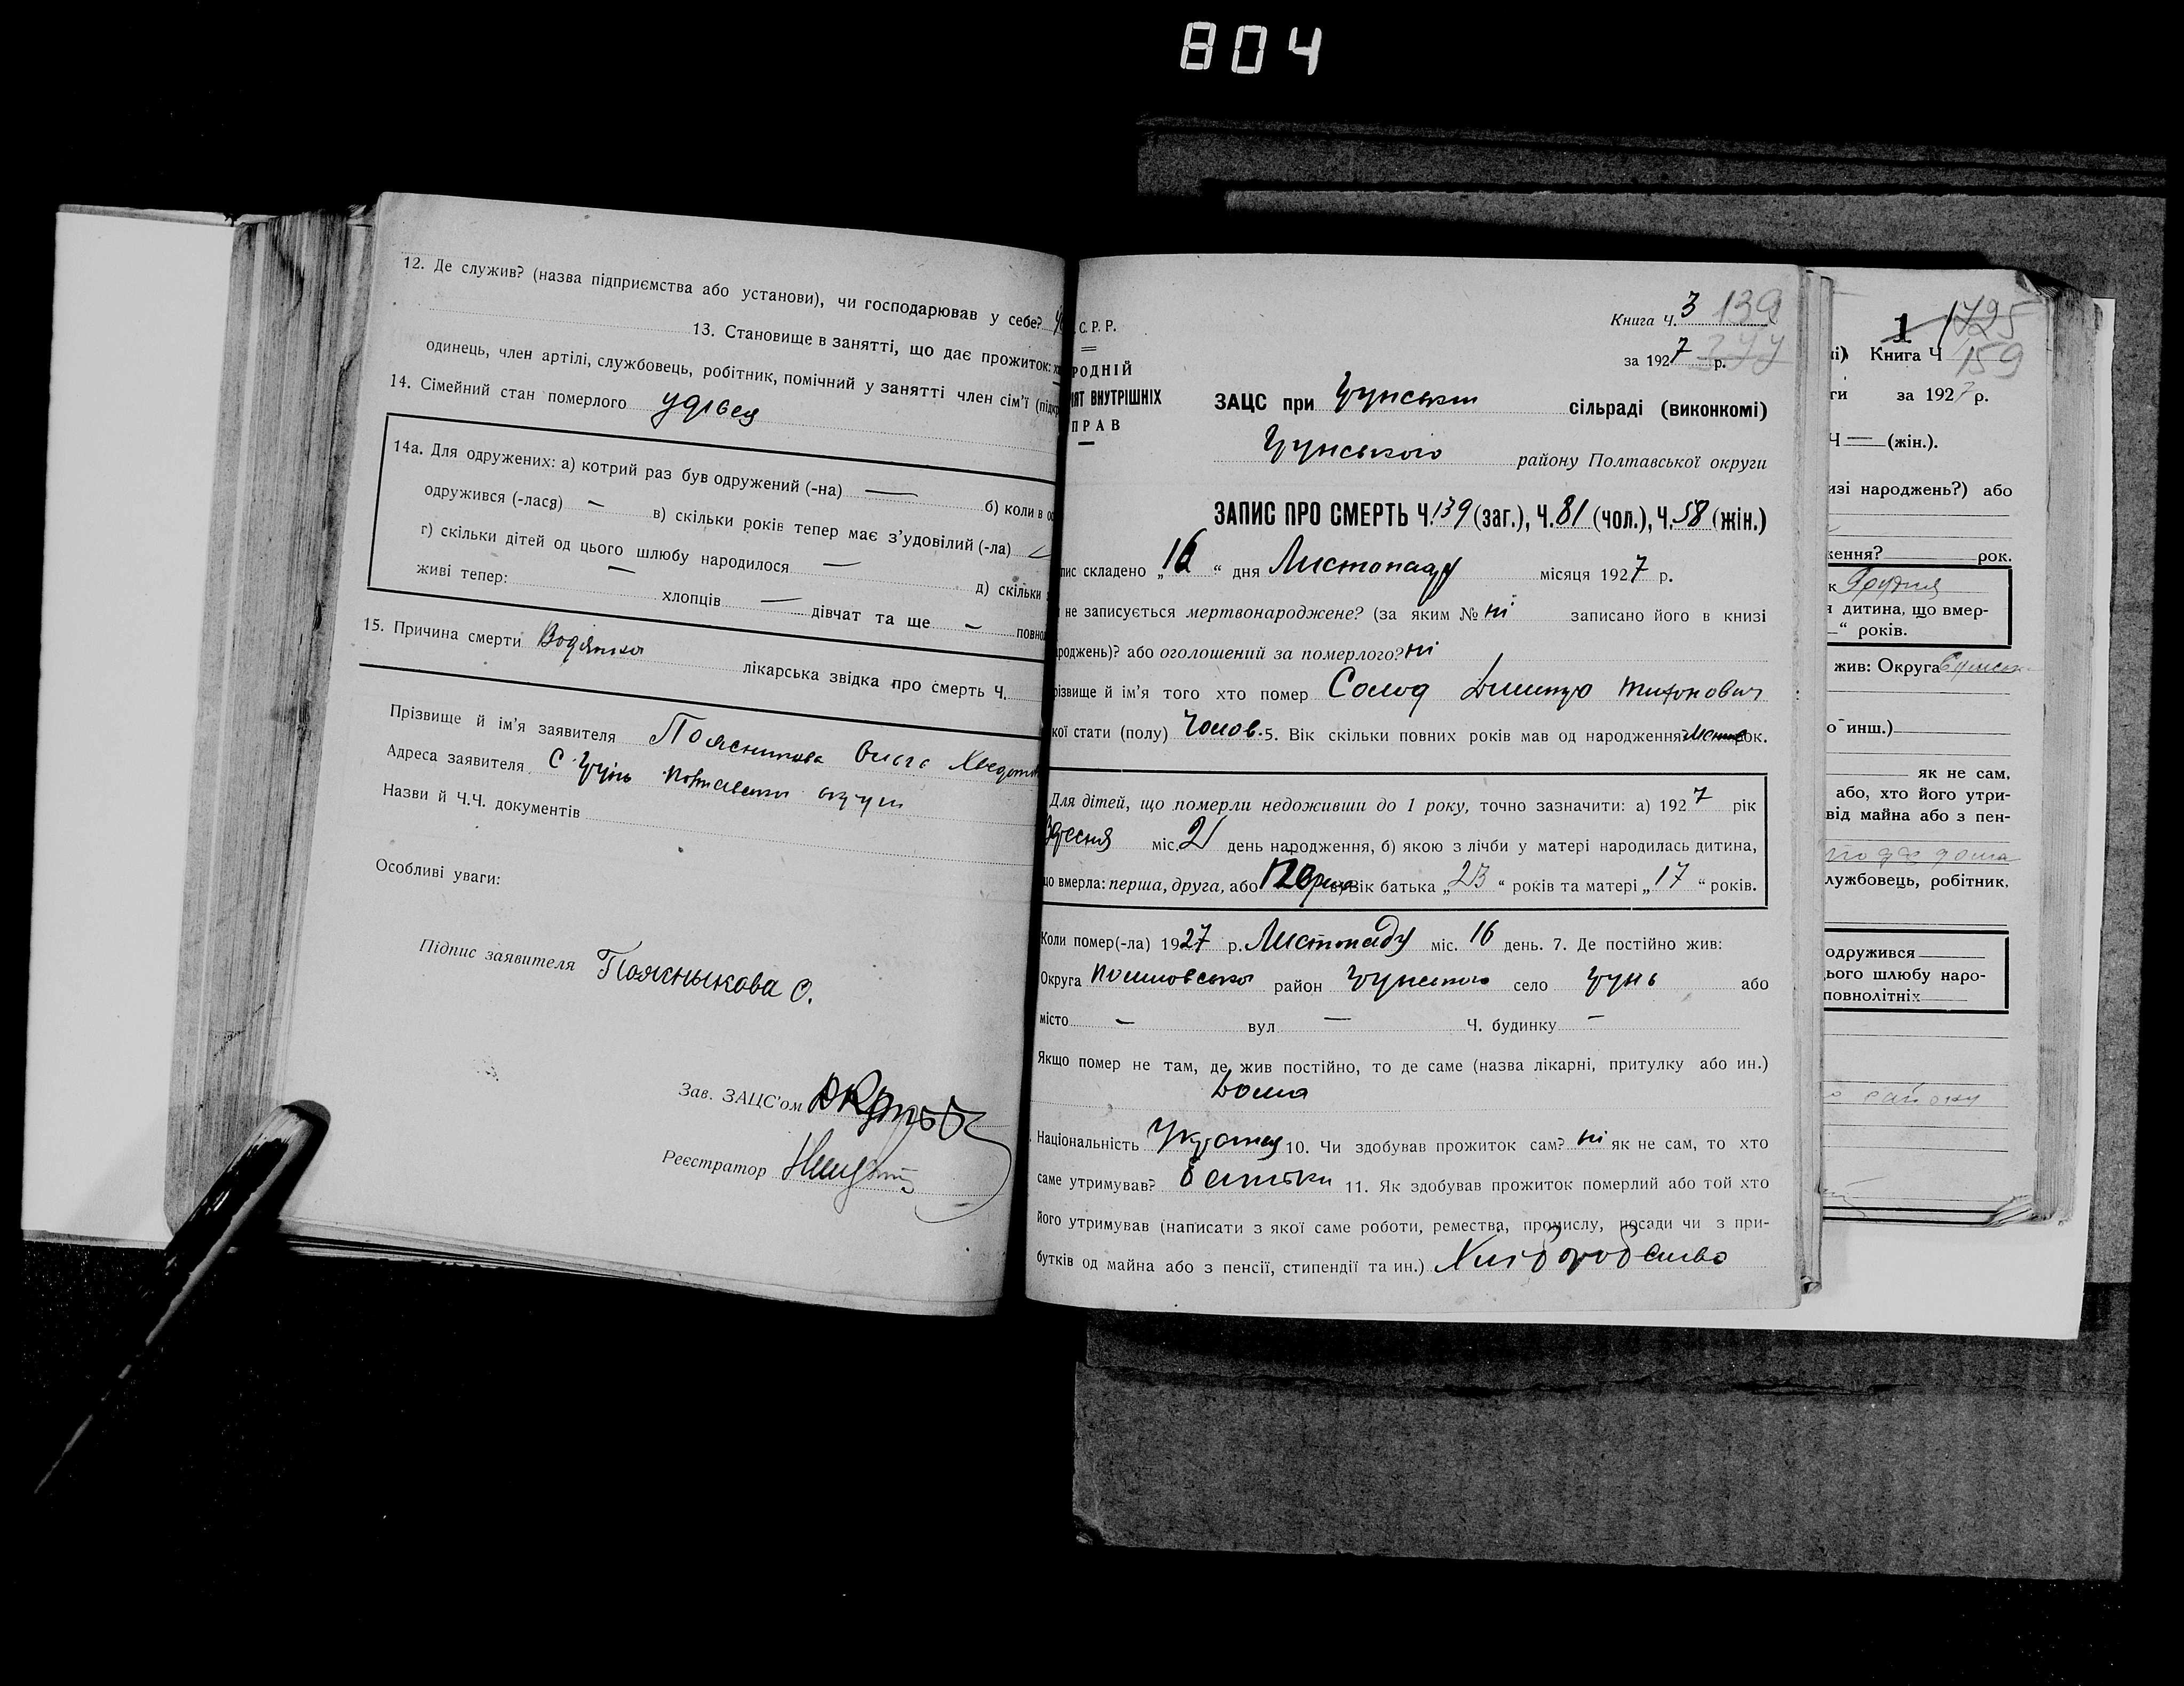 804
12. Де служив? (назва підприємства або установи), чи господарював у себе?
13. Становище в занятті, що дає прожиток:
одинець, член артілі, службовець, робітник, помічний у занятті член сім'ї
14. Сімейний стан померлого удівец
14а. Для одружених: а) котрий раз був одружений (-на) — б) коли в
одружився (-лася) — в) скільки років тепер має з'удовілий (-ла)
г) скільки дітей од цього шлюбу народилося — д) скільки
живі тепер: — хлопців — дівчат та ще —
15. Причина смерти Водянка лікарська звідка про смерть Ч.
Прізвище й ім'я заявителя Поясникова Ольга
Адреса заявителя С Грунь
Назви й Ч.Ч. документів
Особливі уваги:
Підпис заявителя Пояснькова О.
Зав. ЗАЦС'ом
Реєстратор
С. Р. Р.
РОДНІЙ
ІЯТ ВНУТРІШНІХ
ПРАВ
Книга Ч. 3 139
за 1927 р. 277
ЗАЦС при Грунськи сільраді (виконкомі)
Грунського району Полтавської округи
ЗАПИС ПРО СМЕРТЬ Ч. 139 (заг.), Ч. 81 (чол.), Ч. 58 (жін.)
пис складено „16“ дня Листопаду місяця 1927 р.
не записується мертвонароджене? (за яким № ні записано його в книзі
роджень)? або оголошений за померлого? ні
різвище й ім'я того хто помер Солод Дмитро Тихонович
кої стати (полу) Чолов. 5. Вік скільки повних років мав од народження рок.
Для дітей, що померли недоживши до 1 року, точно зазначити: а) 1927 рік
Вресня міс. 21 день народження, б) якою з лічби у матері народилась дитина,
що вмерла: перша, друга, або Перша в) Вік батька „23“ років та матері „17“ років.
Коли помер(-ла) 1927 р. Листопаду міс. 16 день. 7. Де постійно жив:
Округа район Грунського село Грунь або
місто — вул — Ч. будинку —
Якщо помер не там, де жив постійно, то де саме (назва лікарні, притулку або ин.)
Дома
Національність Украінец 10. Чи здобував прожиток сам? ні як не сам, то хто
саме утримував? батьки 11. Як здобував прожиток померлий або той хто
його утримував (написати з якої саме роботи, ремества, промислу, посади чи з при-
бутків од майна або з пенсії, стипендії та ин.) Хліборобство
1 1725
Книга Ч 159
за 1927 р.
Ч — (жін.).
изі народжень?) або
ження? рок.
Грудня
дитина, що вмер-
“ років.
жив: Округа
о инш.)
як не сам,
або, хто його утри-
від майна або з пен-
лужбовець, робітник,
одружився
ього шлюбу наро-
повнолітніх
району